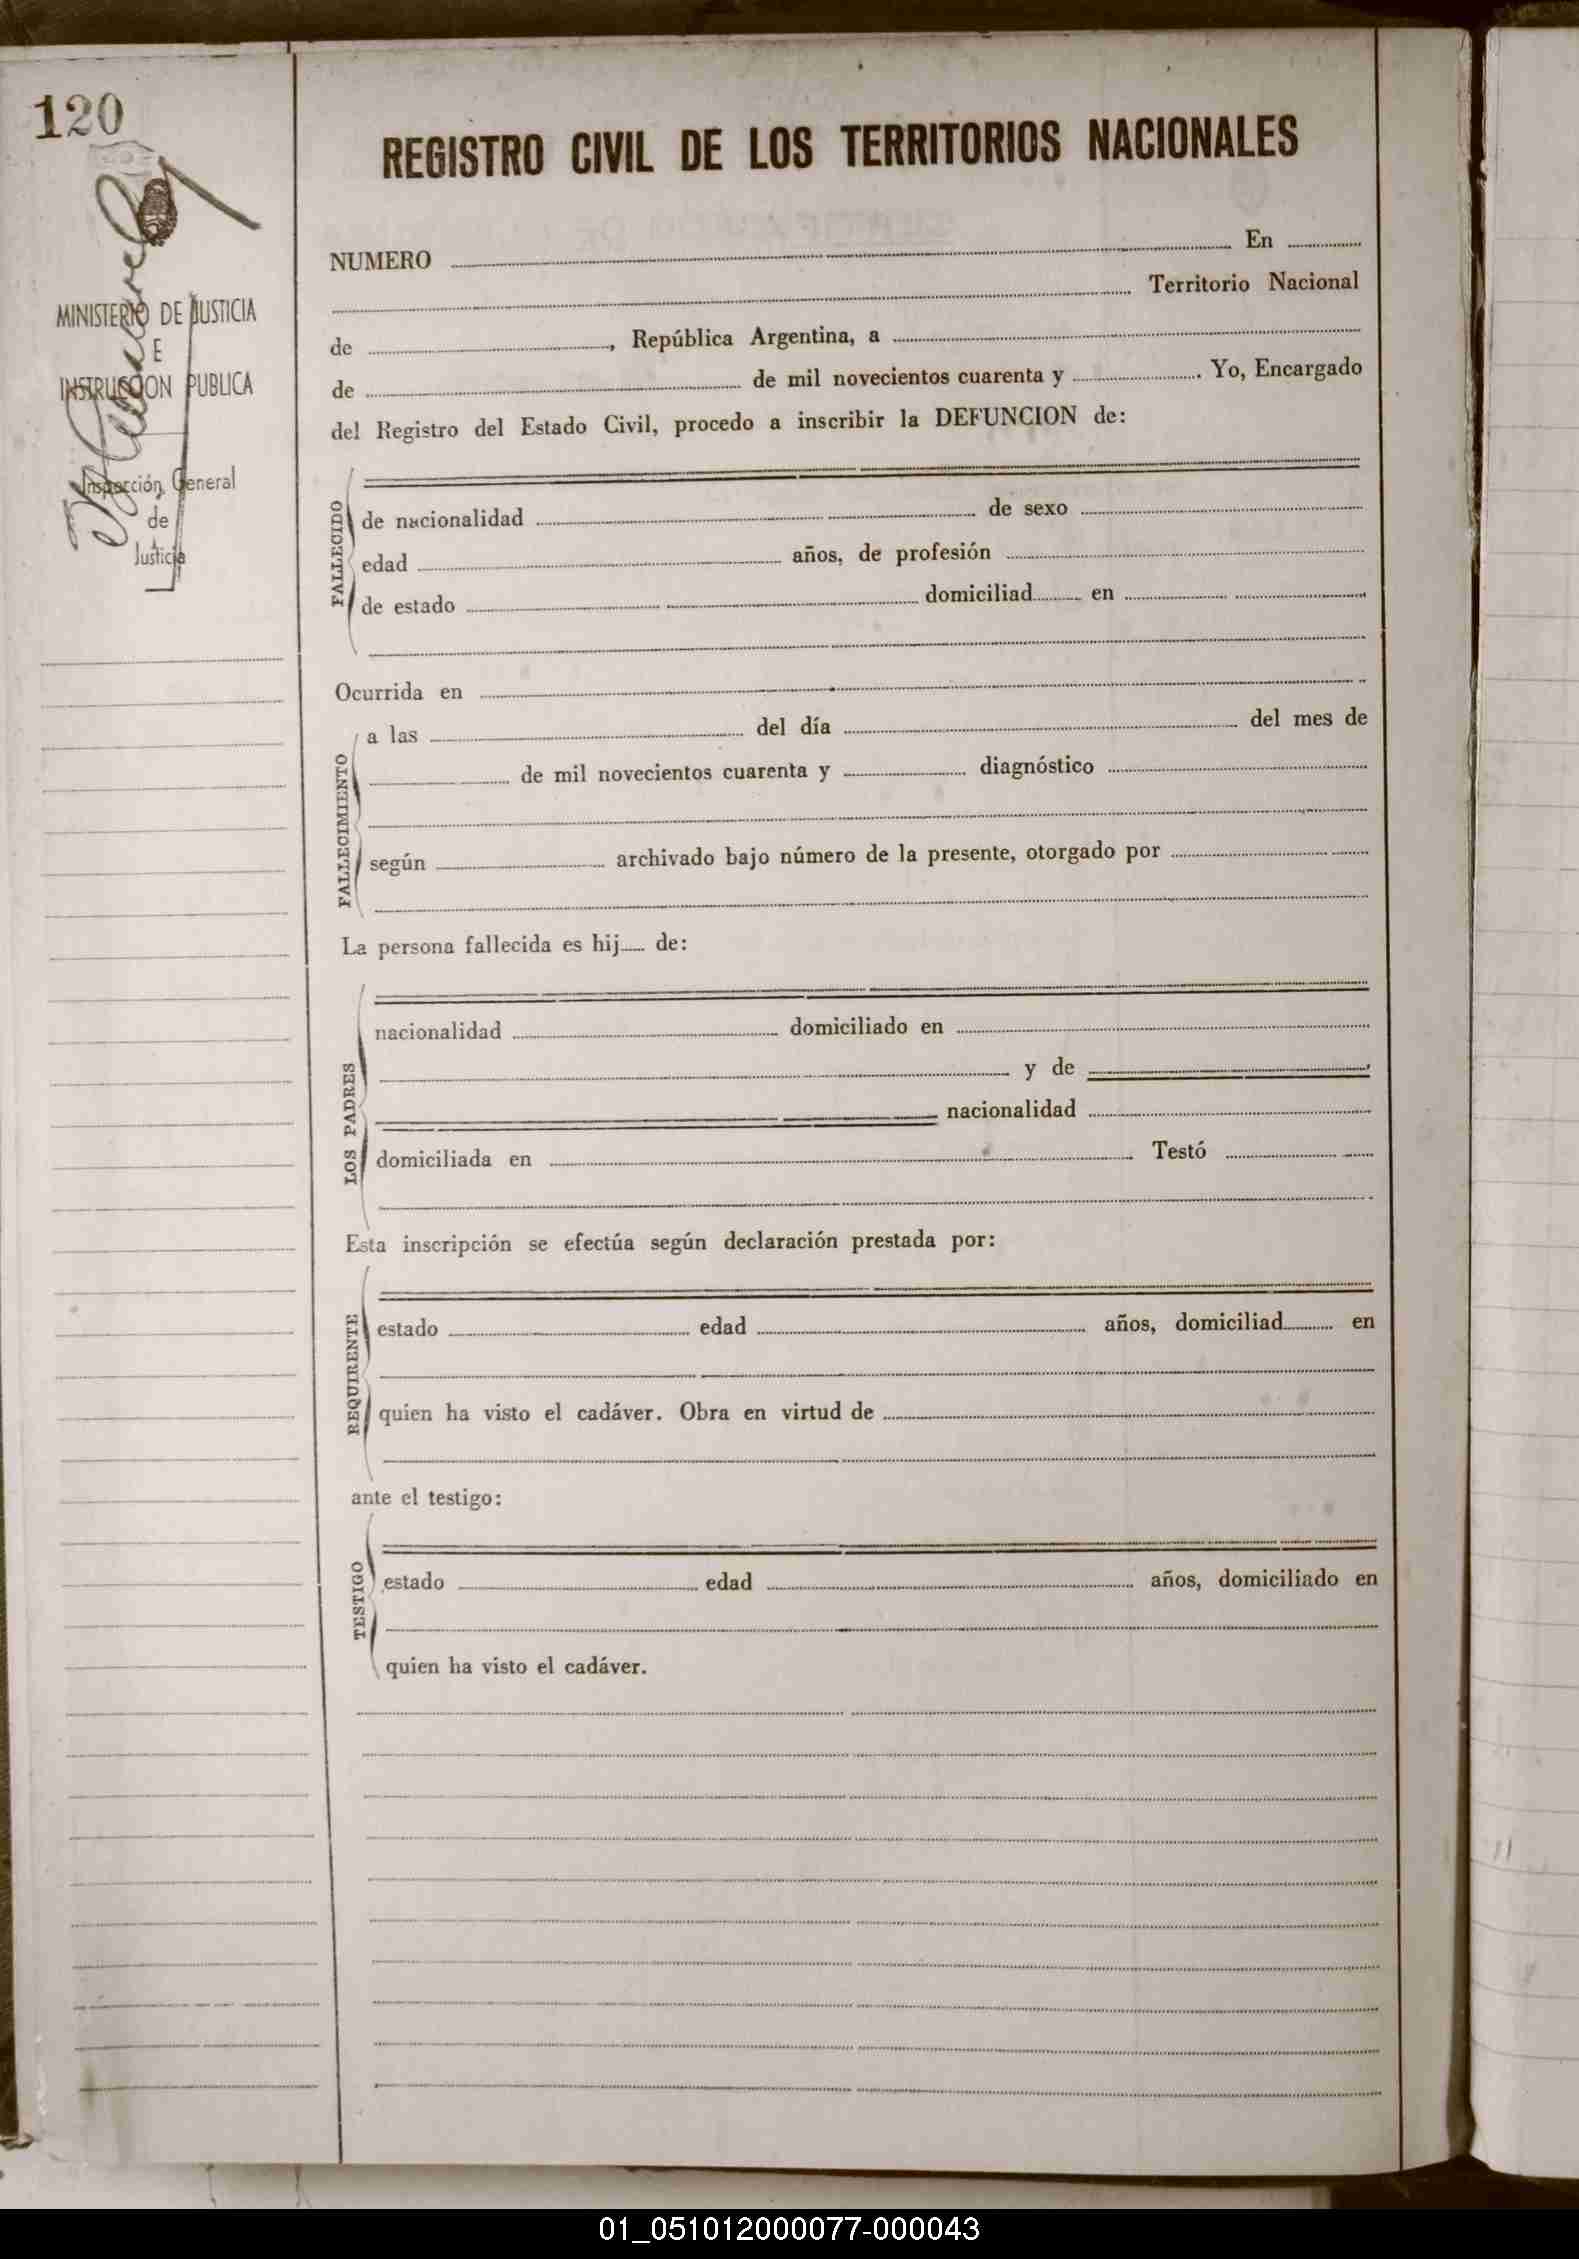 120
MINISTERIO DE JUSTICIA
E
INSTRUCCION PUBLICA
Inspección General
de
Justicia
REGISTRO CIVIL DE LOS TERRITORIOS NACIONALES
NUMERO En
Territorio Nacional
de , República Argentina, a
de de mil novecientos cuarenta y . Yo, Encargado
del Registro del Estado Civil, procedo a inscribir la DEFUNCION de:
FALLECIDO
de nacionalidad de sexo
edad años, de profesión
de estado domiciliad en
Ocurrida en
FALLECIMIENTO
a las del día del mes de
de mil novecientos cuarenta y diagnóstico
según archivado bajo número de la presente, otorgado por
La persona fallecida es hij de:
LOS PADRES
nacionalidad domiciliado en
y de
nacionalidad
domiciliada en Testó
Esta inscripción se efectúa según declaración prestada por:
REQUIRENTE
estado edad años, domiciliad en
quien ha visto el cadáver. Obra en virtud de
ante el testigo:
TESTIGO
estado edad años, domiciliado en
quien ha visto el cadáver.
01_051012000077-000043